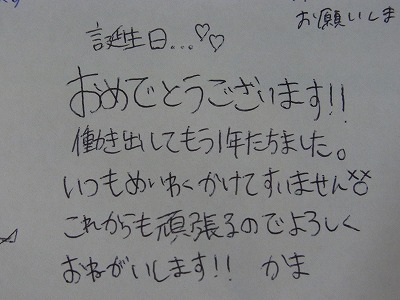 お願いしま
誕生日...♡♡
おめでとうございます!!
働き出してもう1年たちました。
いつもめいわくかけてすいません
これからも頑張るのでよろしく
おねがいします!! かま